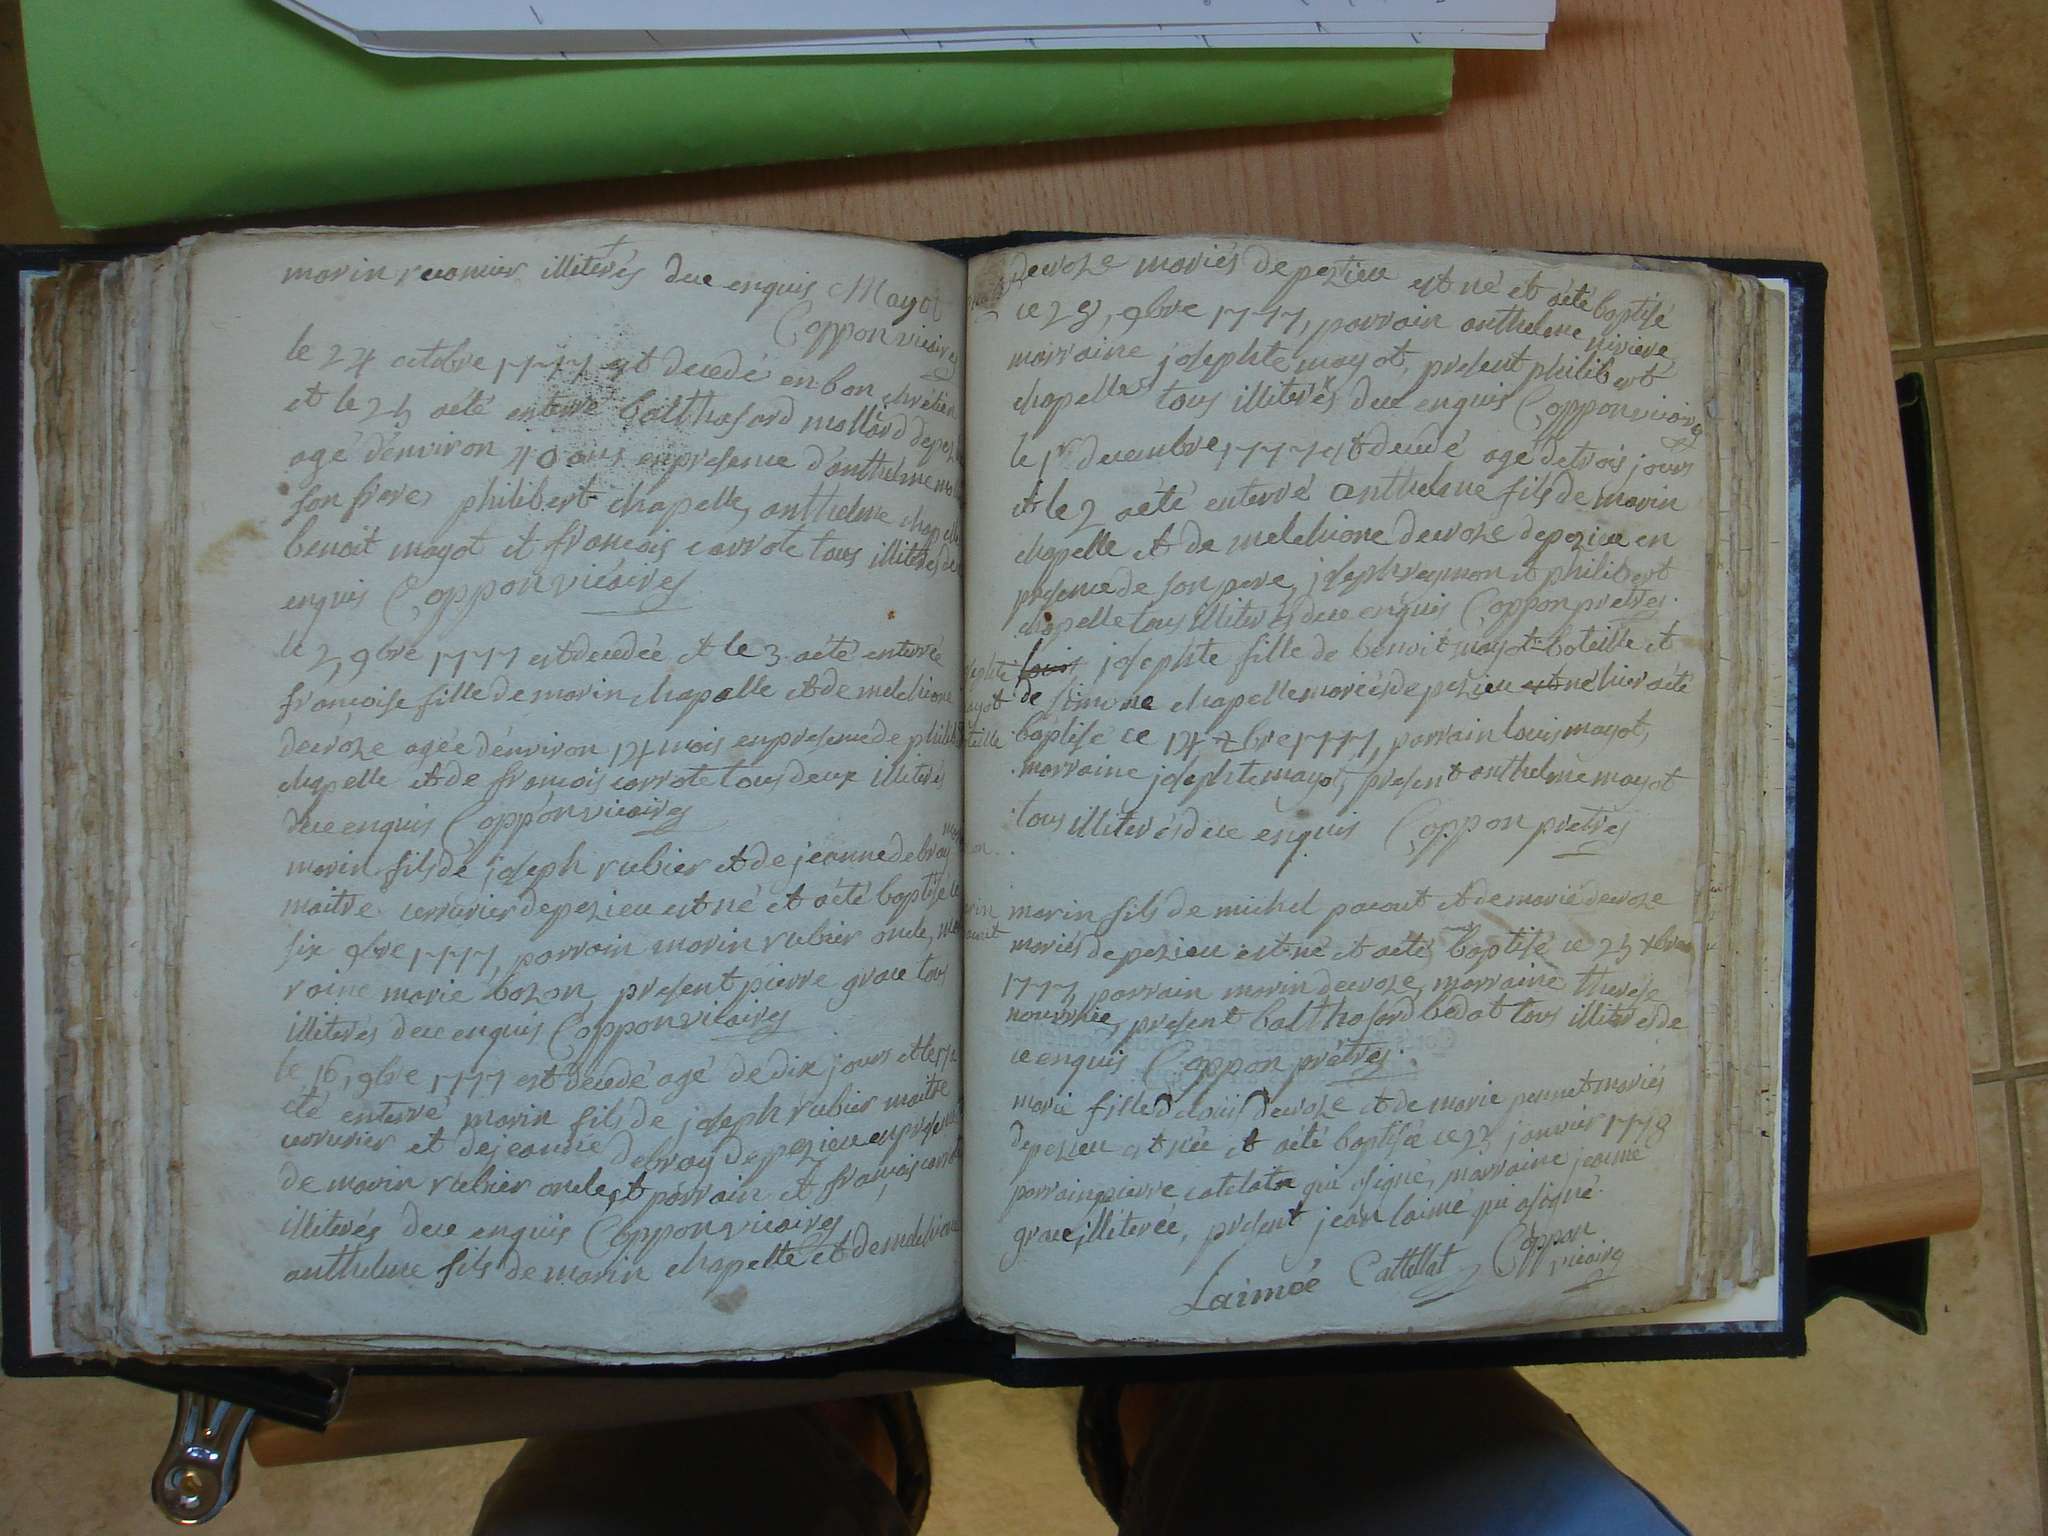 marin recamier illiterés de ce enquis Mayot
Coppon vicaire
le 24 octobre 1777 est decedé en bon chretien
et le 25 aété enterré balthasard mollard depez
agé d'environ 40 ans en presence d'anthelme mo
son frere, philibert chapelle, anthelme chapelle
benoit mayot et francois carrote tous illiterés de
enquis Coppon vicaire
le 2, 9bre 1777 est decedée et le 3 aété enterrée
francoise fille de marin chapelle et de melchione
decroze agée d'environ 14 mois en presence de philib
chapelle et de francois carrote tous deux illiterés
de ce enquis Coppon vicaire
marin fils de joseph rubier et de jeanne debray
maitre serrurier depezieu est né et aété baptisé le
six 9bre 1777, parrain marin rubier oncle, mar
raine marie bozon, present pierre grace tous
illiterés de ce enquis Coppon vicaire
le 16, 9bre 1777 est decedé agé de dix jours et le 17
été enterré marin fils de joseph rubier maitre
serrurier et de jeanne debray de pezieu en presence
de marin rubier oncle et parrain et francois carrote
illiterés de ce enquis Coppon vicaire
anthelme fils de marin chapelle et de melchione
decroze mariés de pezieu est né et aété baptisé
ce 28, 9bre 1777, parrain anthelme riviere,
marraine josephte mayot, present philibert
chapelle tous illiterés de ce enquis Coppon vicaire
le 1er decembre 1777 est decedé agé de trois jours
et le 2 aété enterré anthelme fils de marin
chapelle et de melchione decroze de pezieu en
presence de son pere, joseph reymon et philibert
chapelle tous illiterés de ce enquis Coppon pretre
josephte fille de benoit mayot boteille et
de simone chapelle mariés de pezieu est né hier aété
baptisé ce 14 xbre 1777, parrain louis mayot,
marraine josephte mayot, present anthelme mayot
tous illiterés de ce enquis Coppon pretre
marin fils de michel pacout et de marie decroze
mariés de pezieu est né et aété baptisé ce 25 xbre
1777, parrain marin decroze, marraine therese
nourrice, present balthasard bedat tous illiterés de
ce enquis Coppon prêtre
marie fille de louis decroze et de marie pennet mariés
de pezieu est née et aété baptisée ce 23 janvier 1778
parrain pierre catelat qui asigné, marraine jeanne
grace, illiterée, present jean laimé qui asigné
Laimée Cattellat Coppon
vicaire